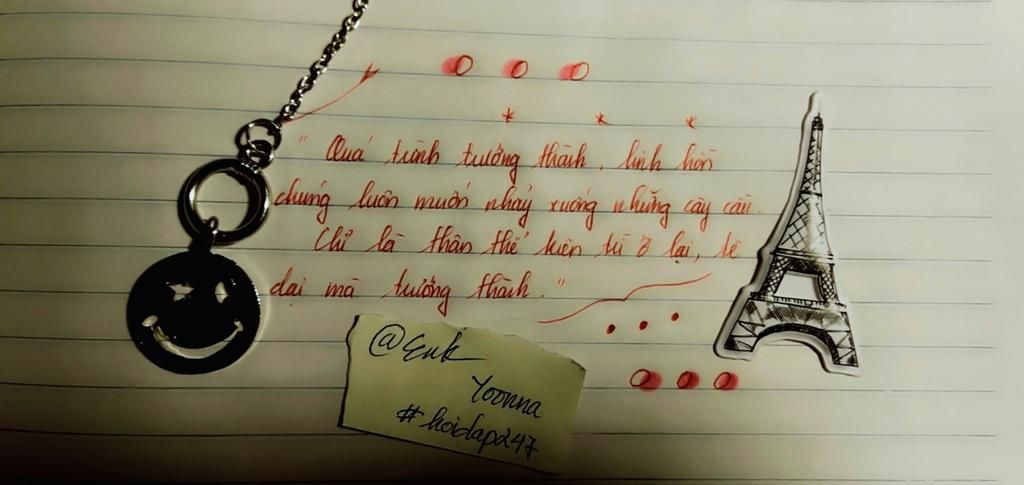 " Quá trình trưởng thành, linh hồn
chúng luôn muốn nhảy xuống những cây cầu.
Chỉ là thân thể kiên trì ở lại, tê
dại mà trưởng thành. "
@Euk
Yoonna
#hoidap247